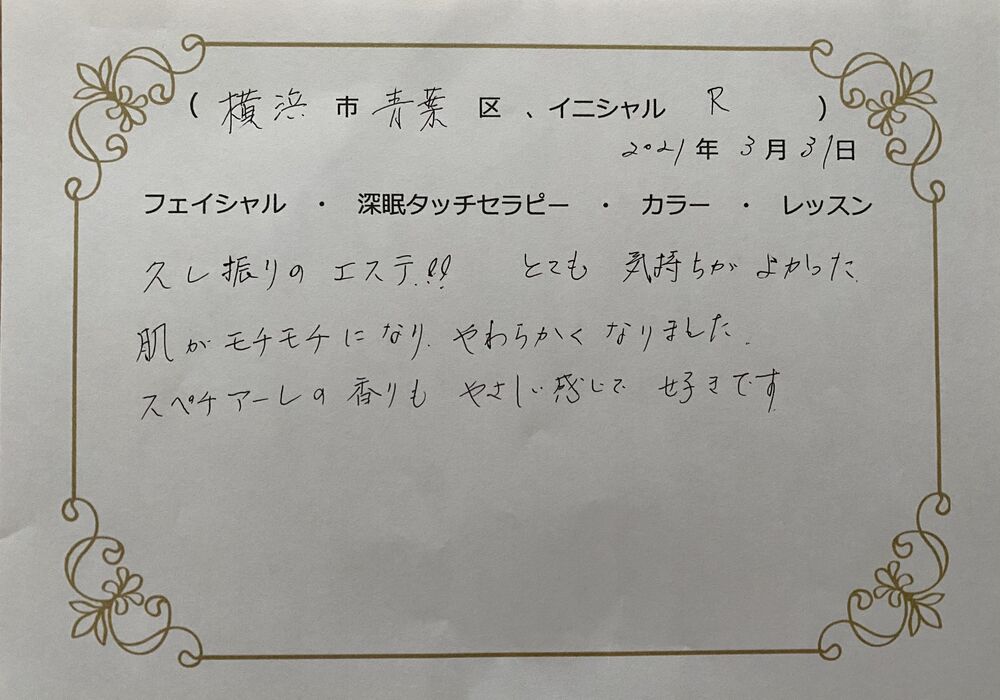 ( 横浜 市 青葉 区 、イニシャル R )
2021年 3月 31日
フェイシャル ・ 深眠タッチセラピー ・ カラー ・ レッスン
久し振りの エステ!! とても 気持ちが よかった.
肌が モチモチ に なり. やわらかく なりました.
スペチアーレの 香りも やさしい 感じで 好きです